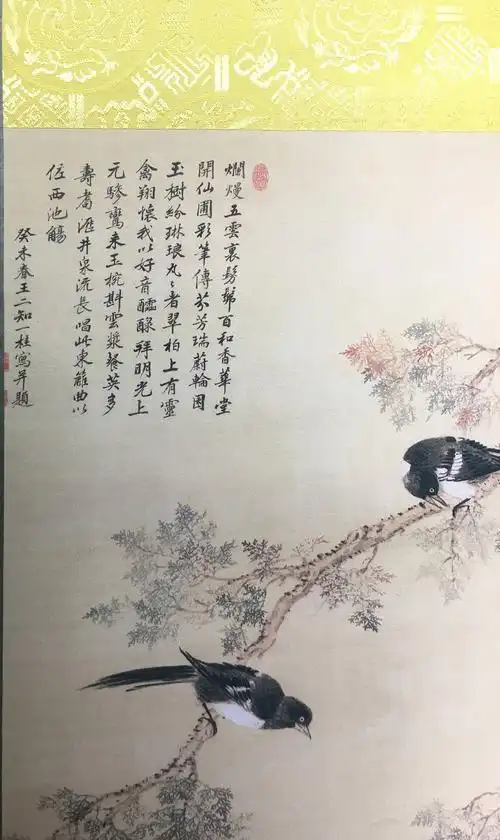 爛熳五雲裏髣髴百和香華堂
開仙圃彩筆傳芬芳瑞蔚輪囷
玉樹紛琳琅丸〻者翠柏上有靈
禽翔懷我以好音醽醁拜明光上
元驂鸞来玉椀斟雲漿餐英多
壽耇滙井泉流長唱此東籬曲以
佐西池觴
癸未春王二知一桂寫并題